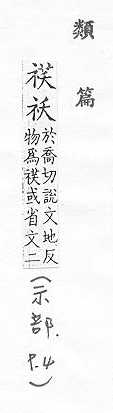 類篇
祆祅
於喬切說文地反
物為祆或省文二
(示部. P.4)